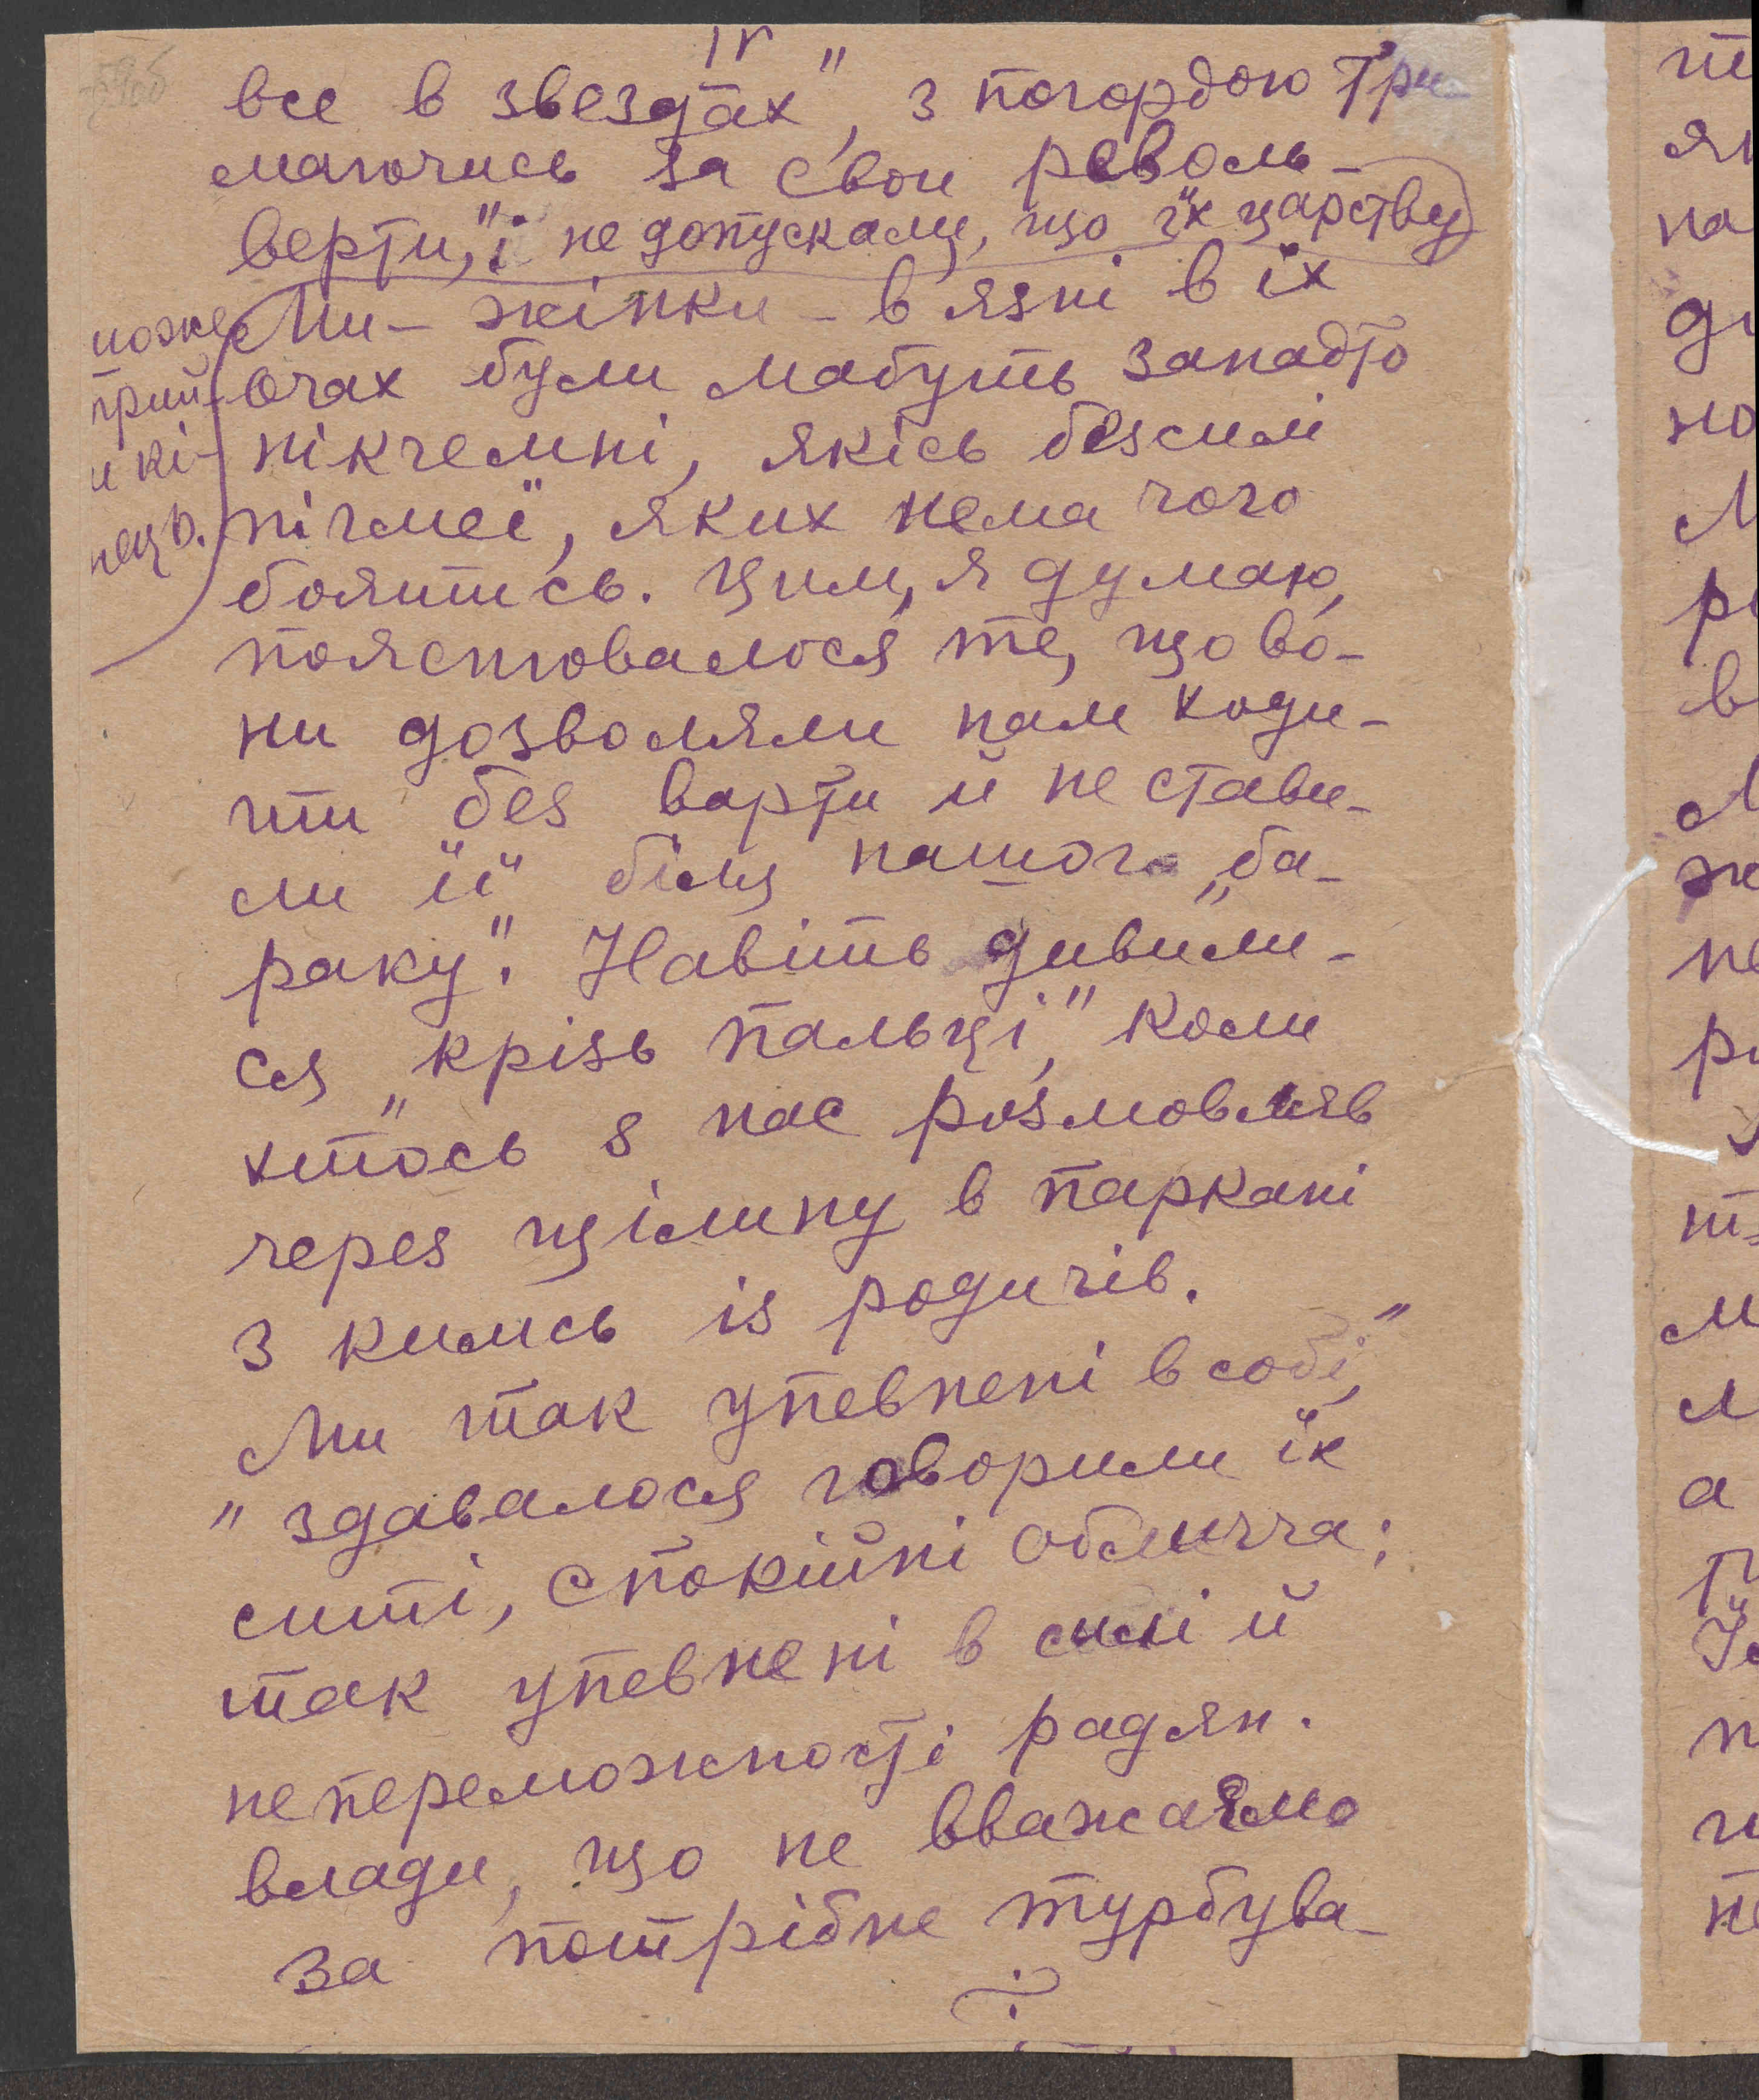 все в звездах", з погордою три-
маючись за свои револь-
верти," і не допускали, що їх царству
може
прий-
и кі-
нець.
Ми – жінки – в'язні в їх
очах були мабуть занадто
нікчемні, якісь безсилі
пігмеї, яких нема чого
боятись. Цим, я думаю,
пояснювалося те, що во-
ни дозволяли нам ходи-
ти без варти й не стави-
ли її біля нашого „ба-
раку". Навіть дивили-
ся „крізь пальці," коли
хтось з нас розмовляв
через щілину в паркані
з кимсь із родичів.
„Ми так упевнені в собі,"
" здавалося говорили їх
ситі, спокійні обличча;
так упевнені в силі й
непереможності радян.
влади, що не вважаємо
за потрібне турбува-